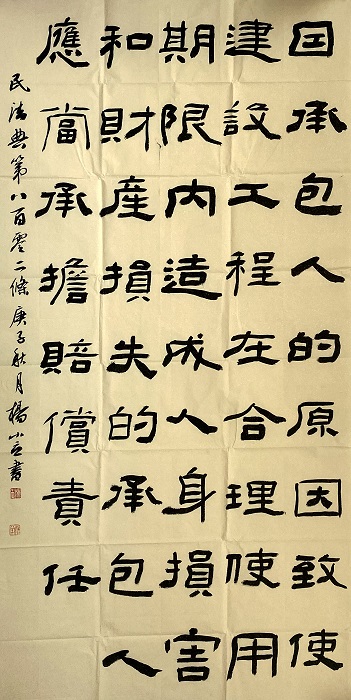 囙承包人的原因致使
建設工程在合理使用
期限内造成人身損害
和財産損失的承包人
應當承擔賠償責任
民法典第八百零二條庚子秋月楊書